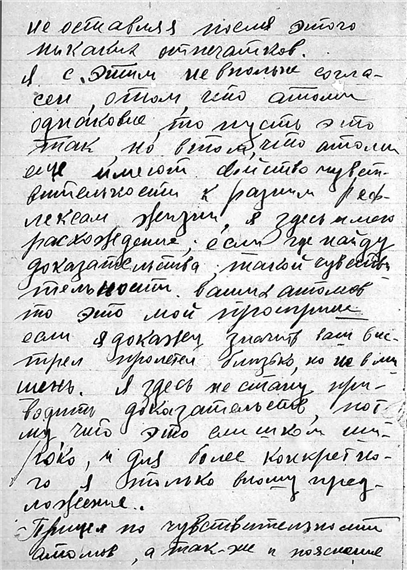 не оставляя после этого
никаких отпечатков.
Я с этим не вполне согла-
сен, о том, что атомы
однаковые то пусть это
так но в том, что атомы
еще имеют свойство чувст-
вительности к разным реф-
лексам жизни, я здесь имею
расхождение, если где найду
доказательства такой чувстви
тельности ваших атомов
то это мой проигрыш
если я докажу значит ваш выс-
трел пролетел близько, но не в ми
шень. Я здесь не стану при-
водить доказательств, пот
му что это слишком ши-
роко, и для более конкретно-
го я только вношу пред-
ложение.
Прицел по чувствительности
атомов, а так-же и пояснение